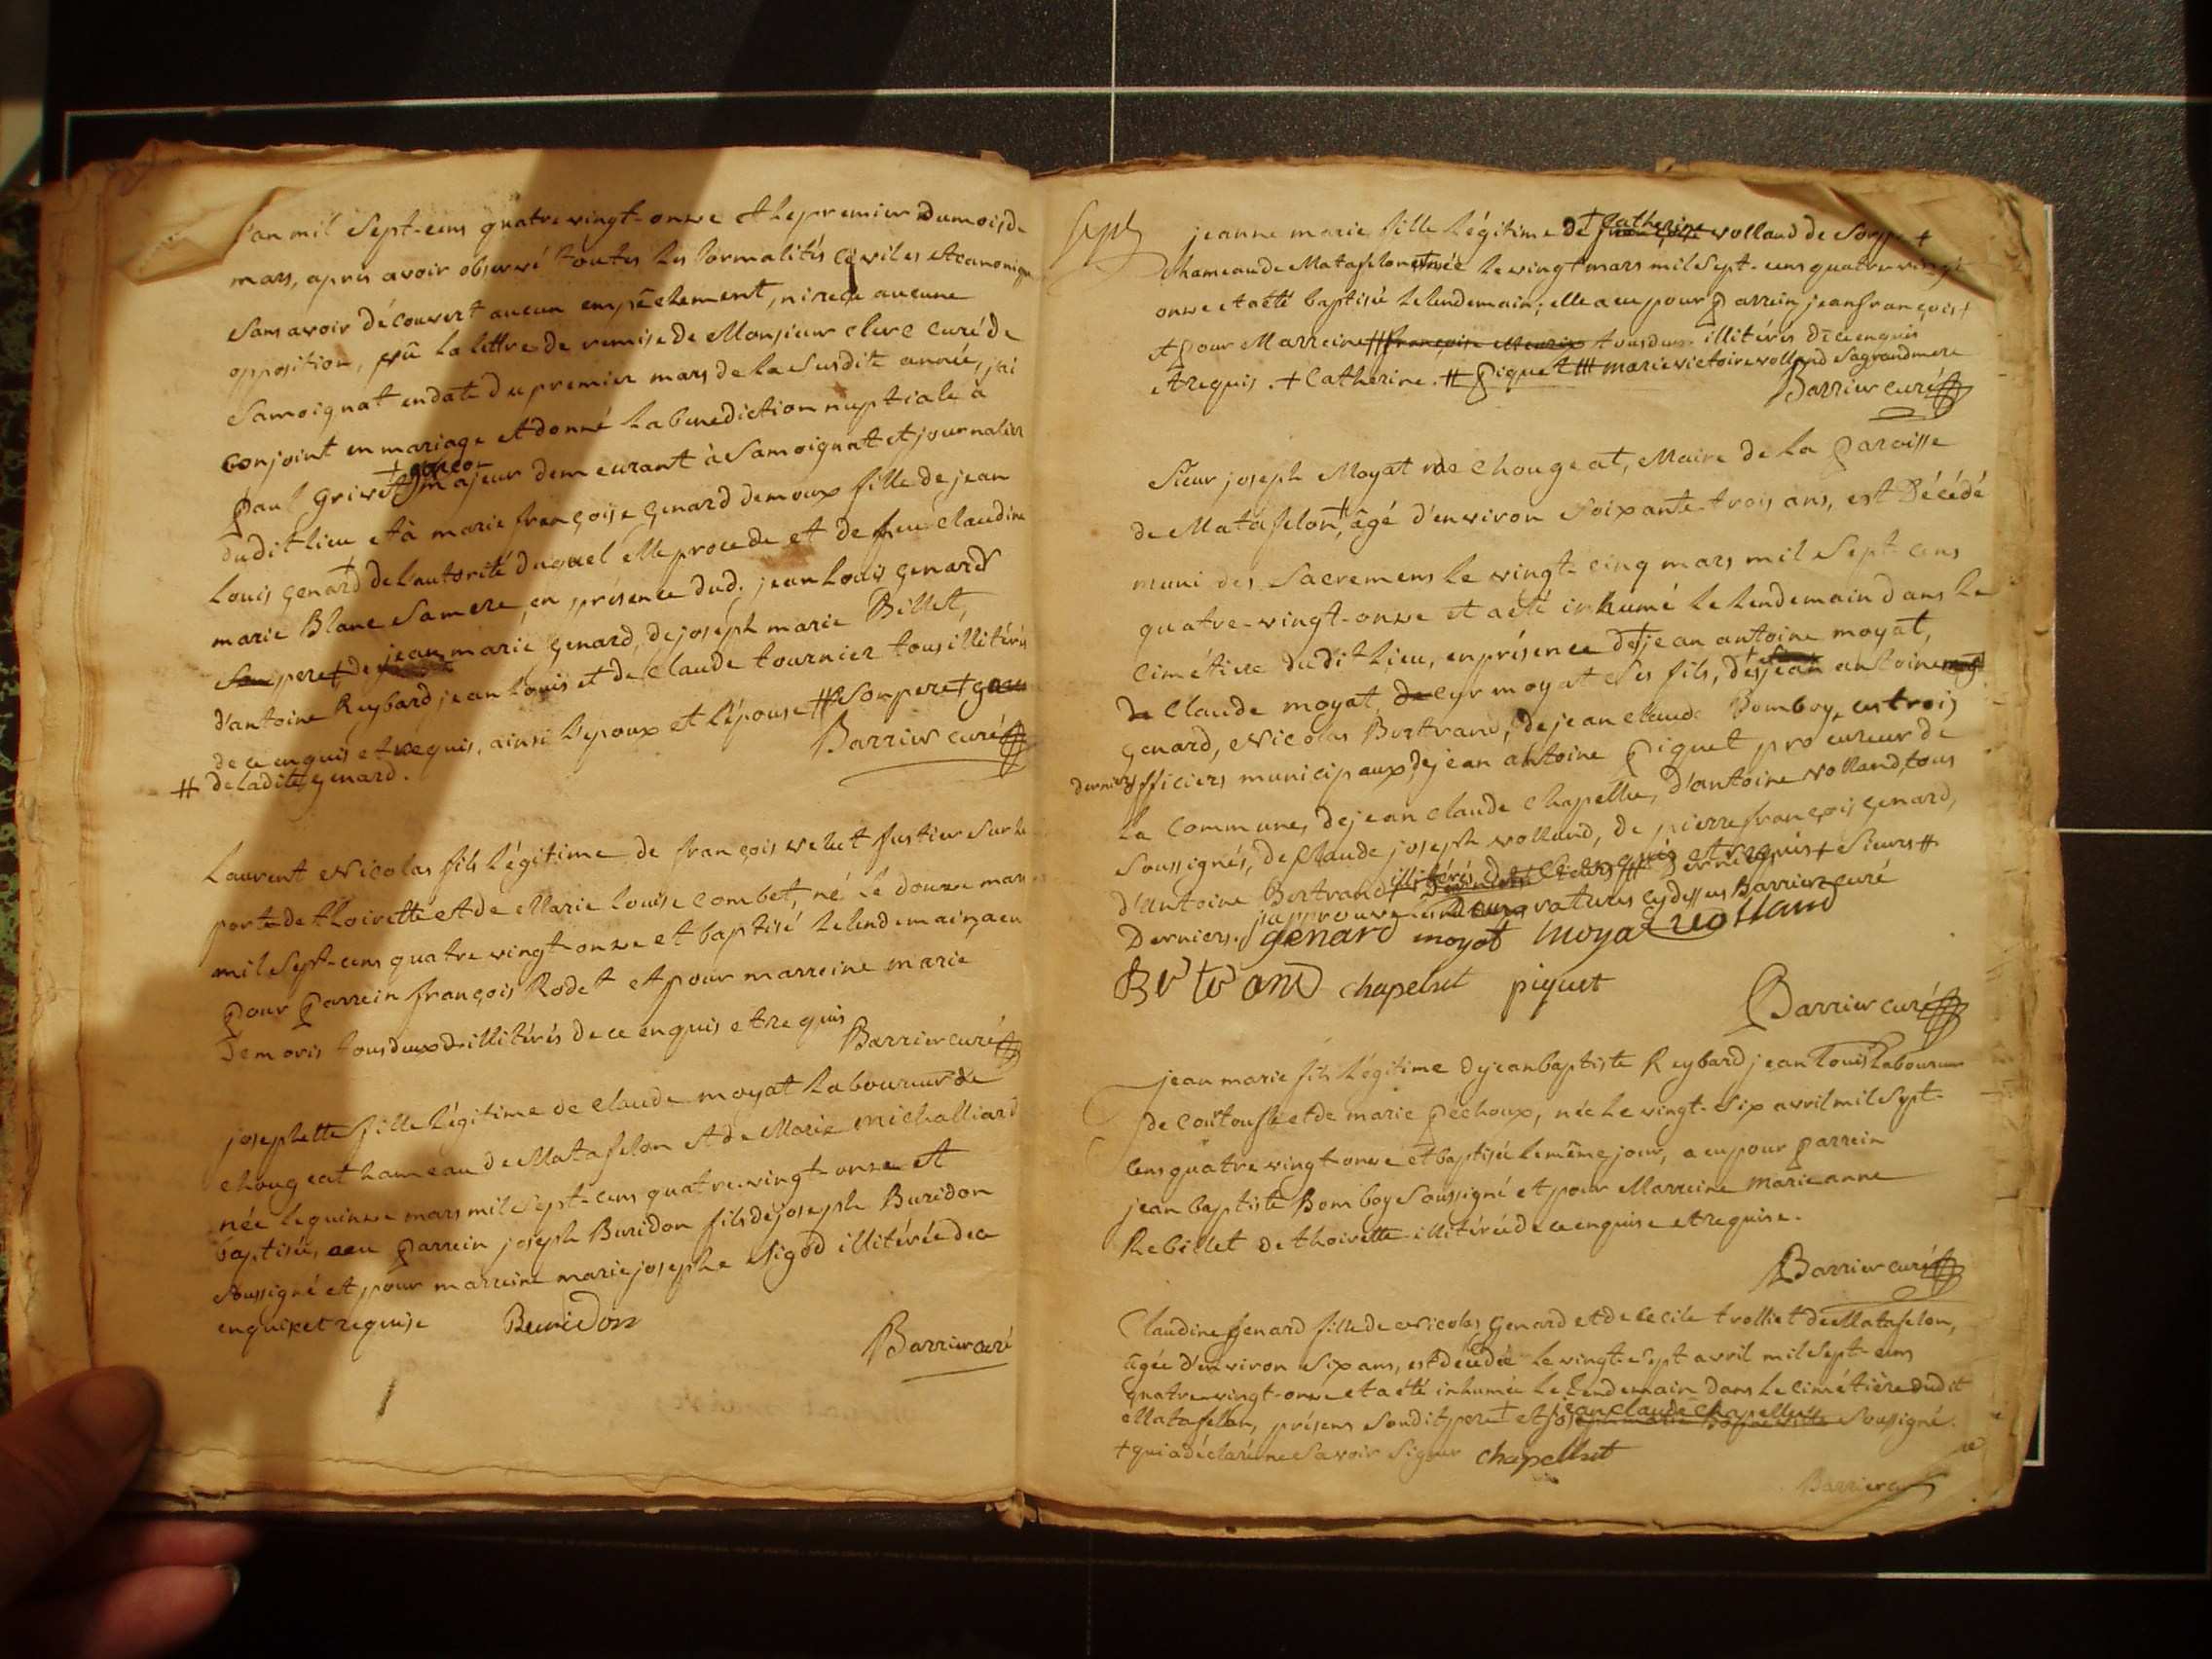 l'an mil Sept-cens quatre vingt-onze et le premier du mois de
mars, apres avoir observé toutes les formalités civiles et canoniques
Sans avoir découvert aucun empêchement, ni reçu aucune
opposition, vû la lettre de remise de Monsieur clerc curé de
Samoignat en date du premier mars de la Susdite année, j'ai
conjoint en mariage et donné la benediction nuptiale à
paul Grivet + majeur demeurant à Samoignat et journalier
dudit lieu et à marie françoise genard demoux fille de jean
Louis genard de l'autorité duquel elle procede et de feue claudine
marie Blanc Sa mere, en présence dud. jean Louis genard
Son pere + de jean marie genard, de joseph marie Billet,
d'antoine Reybard jean Louis et de claude tournier tous illitérés
de ce enquis et requis, ainsi l'epoux et l'épouse # Son pere +
# de ladite genard. Barrier curé
Laurent Nicolas fils légitime de françois velut fustier Sur le
port de thoirette et de Marie Louise combet, né le douze mars
mil Sept-cens quatre vingt-onze et baptisé le lendemain, a eu
pour parrein françois Rodet et pour marreine marie
Demoris tous deux illitérés de ce enquis et requis
Barrier curé
josephette fille légitime de claude moyat laboureur de
chougeat hameau de Matafelon et de Marie michalliard
née le quinze mars mil Sept-cens quatre-vingt-onze et
baptisée, a eu parrein joseph Buridon fils de joseph Buridon
Soussigné et pour marreine marie josephe Nigod illitérée de ce
enquise et requise Buridon
Barrier curé
Sept
jeanne marie fille légitime de + catherine volland de +
hameau de Matafelon et née le vingt mars mil Sept-cens quatre vingt
onze et a été baptisée le lendemain; elle a eu pour parrein jean françois #
et pour Marreine ### françoise tous deux illitérés de ce enquis
et requis. + catherine. # piquet ### marie victoire volland Sa grandmere
Barrier curé
Sieur joseph Moyat de chougeat, Maire de la paroisse
de Matafelon, âgé d'environ Soixante-trois ans, est Décédé
muni des Sacremens le vingt-cinq mars mil Sept cens
quatre-vingt-onze et a été inhumé le lendemain dans le
cimétiere dudit lieu, en présence de jean antoine moyat,
de claude moyat, de cyr moyat Ses fils, des + jean antoine
genard, Nicolas Bertrand, de jean claude Bomboy, ces trois
derniers officiers municipaux, de jean antoine piquet procureur de
la commune, de jean claude chapellu, d'antoine volland, tous
Soussignés, de claude joseph volland, de pierre françois genard,
d'antoine Bertrand illitérés de ce enquis et requis + Sieurs #
Derniers. j'approuve les ratures cydessus Barrier curé
genard moyat moyat volland
Bertrand chapelut piquet
Barrier curé
jean marie fils légitime de jean baptiste Reybard jean Louis Laboureur
de coutoufle et de marie péchoux, née le vingt-Six avril mil Sept-
cens quatre vingt-onze et baptisé le même jour, a eu pour parrein
jean baptiste Bomboy Soussigné et pour Marreine marie anne
Rebillet de thoirette illitérée de ce enquise et requise.
Barrier curé
claudine genard fille de Nicolas genard et de cecile trolliet de Matafelon,
âgée d'environ Six ans, est décédée le vingt-Sept avril mil Sept-cens
quatre-vingt-onze et a été inhumée le lendemain dans le cimétière dudit
Matafelon, présens Son dit pere + et jean claude chapellut Soussigné.
+ qui a déclaré ne Savoir Signer chapellut
Barrier curé